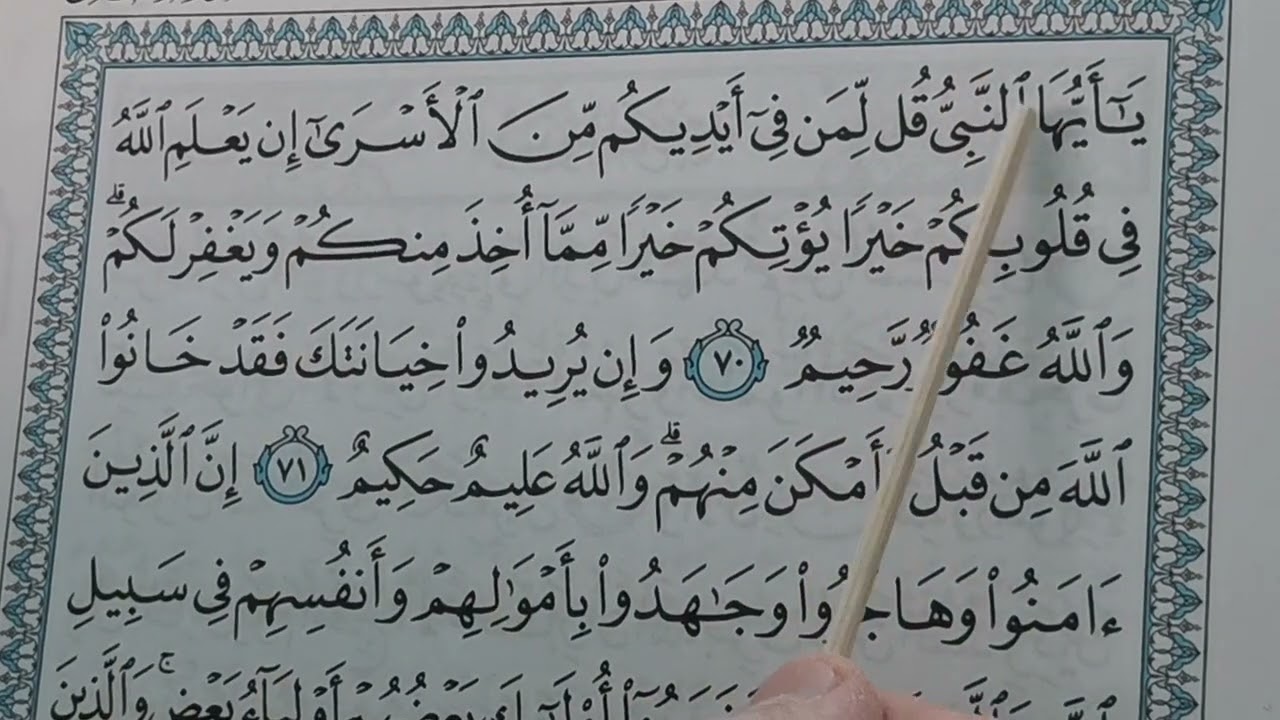 يَٰٓأَيُّهَا ٱلنَّبِيُّ قُل لِّمَن فِىٓ أَيْدِيكُم مِّنَ ٱلْأَسْرَىٰٓ إِن يَعْلَمِ ٱللَّهُ
فِى قُلُوبِكُمْ خَيْرًا يُؤْتِكُمْ خَيْرًا مِّمَّآ أُخِذَ مِنكُمْ وَيَغْفِرْ لَكُمْ ۗ
وَٱللَّهُ غَفُورٌ رَّحِيمٌ ٧٠ وَإِن يُرِيدُوا۟ خِيَانَتَكَ فَقَدْ خَانُوا۟
ٱللَّهَ مِن قَبْلُ أَمْكَنَ مِنْهُمْ ۗ وَٱللَّهُ عَلِيمٌ حَكِيمٌ ٧١ إِنَّ ٱلَّذِينَ
ءَامَنُوا۟ وَهَاجَرُوا۟ وَجَٰهَدُوا۟ بِأَمْوَٰلِهِمْ وَأَنفُسِهِمْ فِى سَبِيلِ
أَوْلِيَآءُ بَعْضٍ ۚ وَٱلَّذِينَ